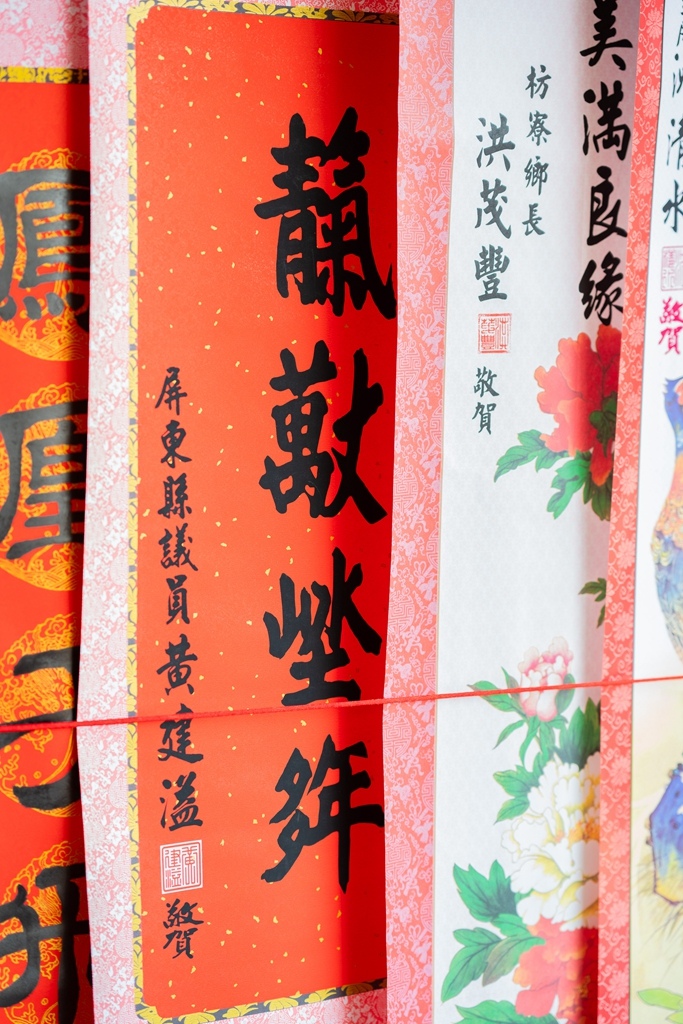 清水
敬賀
美滿良緣
枋寮鄉長
洪茂豐
敬賀
靝埊
屏東縣議員黃建溢
敬賀
鳳凰于飛